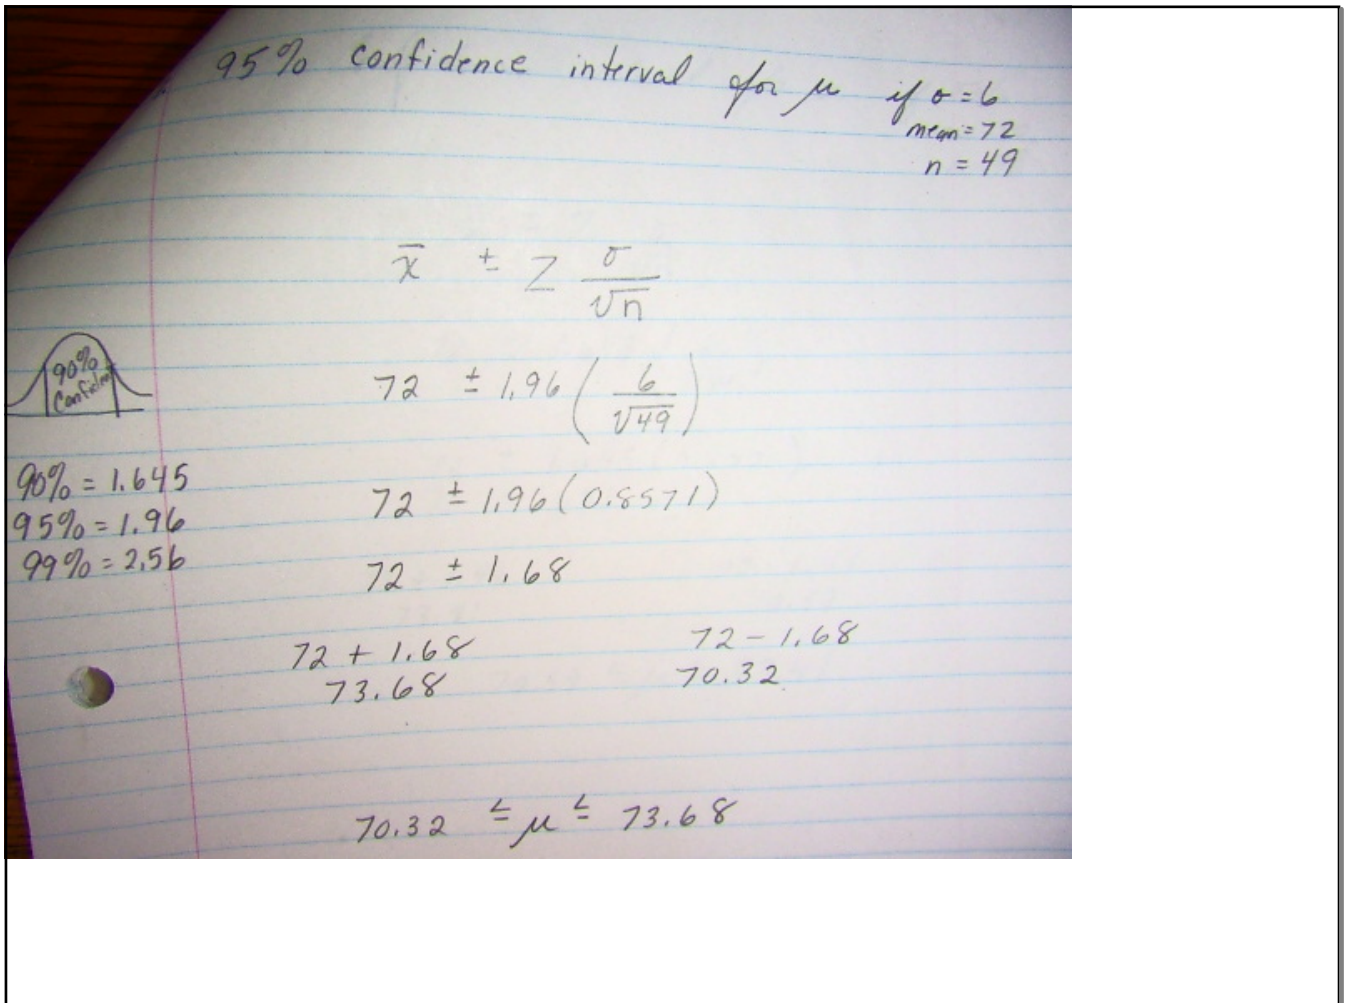 95% confidence interval for μ if σ = 6
mean = 72
n = 49
x̄ ± Z σ/√n
90% Confident
72 ± 1.96 (6/√49)
90% = 1.645
95% = 1.96
99% = 2.56
72 ± 1.96 (0.8571)
72 ± 1.68
72 + 1.68
73.68
72 - 1.68
70.32
70.32 ≤ μ ≤ 73.68